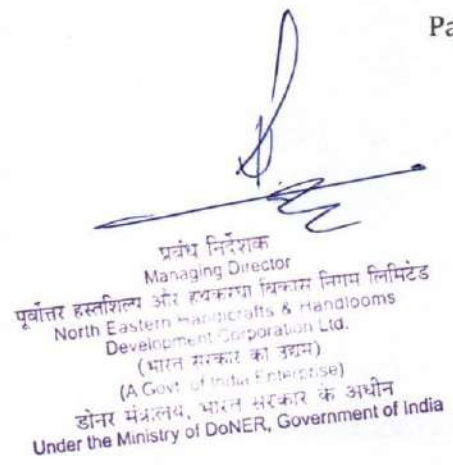 Pa
प्रबंध निर्देशक
Managing Director
पूर्वोत्तर हस्तशिल्प और हथकरघा विकास निगम लिमिटेड
North Eastern Handicrafts & Handlooms
Development Corporation Ltd.
(भारत सरकार का उद्यम)
(A Govt. of India Enterprise)
डोनर मंत्रालय, भारत सरकार के अधीन
Under the Ministry of DoNER, Government of India